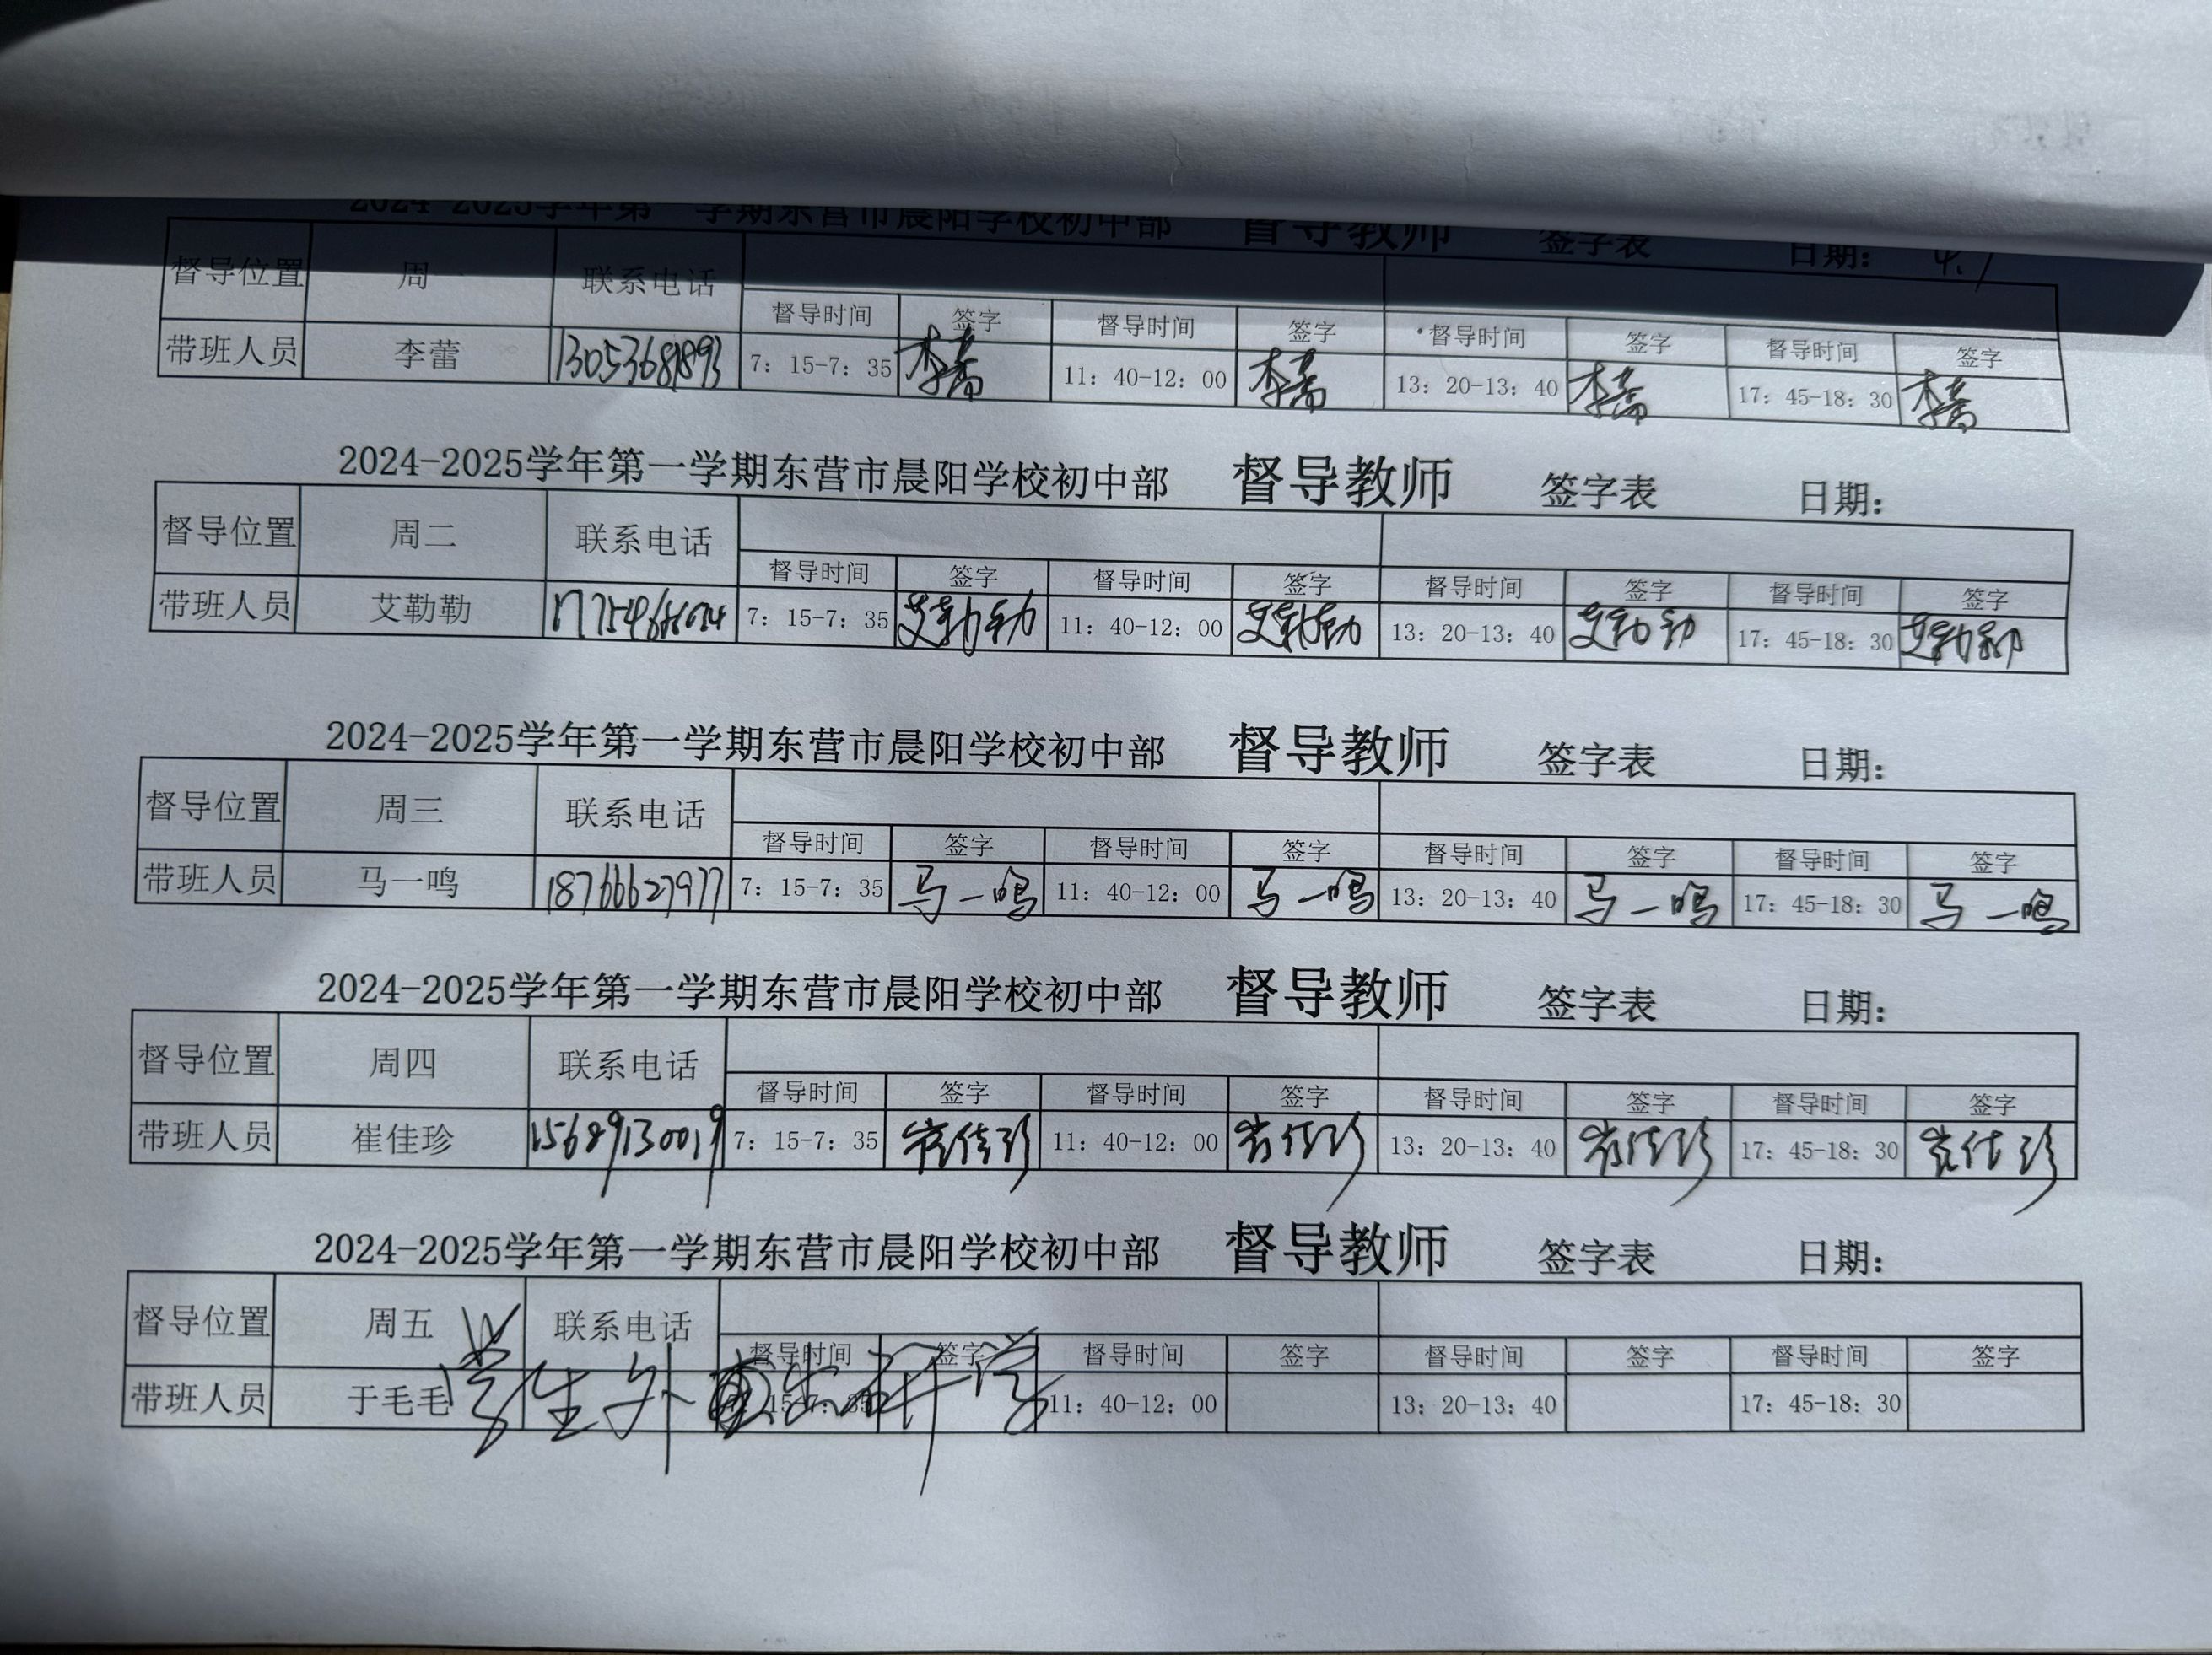 2024-2025学年第一学期东营市晨阳学校初中部 督导教师 签字表 日期：
督导位置 周一 联系电话
督导时间 签字 督导时间 签字 督导时间 签字 督导时间 签字
带班人员 李蕾 13053681893 7：15-7：35 李蕾 11：40-12：00 李蕾 13：20-13：40 李蕾 17：45-18：30 李蕾
2024-2025学年第一学期东营市晨阳学校初中部 督导教师 签字表 日期：
督导位置 周二 联系电话
督导时间 签字 督导时间 签字 督导时间 签字 督导时间 签字
带班人员 艾勒勒 7：15-7：35 艾勒勒 11：40-12：00 艾勒勒 13：20-13：40 艾勒勒 17：45-18：30 艾勒勒
2024-2025学年第一学期东营市晨阳学校初中部 督导教师 签字表 日期：
督导位置 周三 联系电话
督导时间 签字 督导时间 签字 督导时间 签字 督导时间 签字
带班人员 马一鸣 18766627977 7：15-7：35 马一鸣 11：40-12：00 马一鸣 13：20-13：40 马一鸣 17：45-18：30 马一鸣
2024-2025学年第一学期东营市晨阳学校初中部 督导教师 签字表 日期：
督导位置 周四 联系电话
督导时间 签字 督导时间 签字 督导时间 签字 督导时间 签字
带班人员 崔佳珍 15689130019 7：15-7：35 崔佳珍 11：40-12：00 崔佳珍 13：20-13：40 崔佳珍 17：45-18：30 崔佳珍
2024-2025学年第一学期东营市晨阳学校初中部 督导教师 签字表 日期：
督导位置 周五 联系电话
督导时间 签字 督导时间 签字 督导时间 签字 督导时间 签字
带班人员 于毛毛 学生外出研学 11：40-12：00 13：20-13：40 17：45-18：30